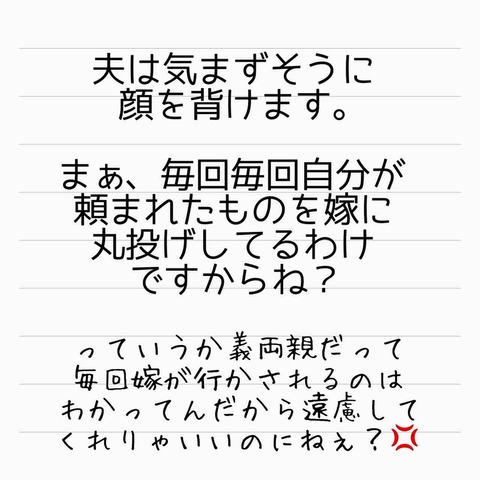 夫は気まずそうに
顔を背けます。
まぁ、毎回毎回自分が
頼まれたものを嫁に
丸投げしてるわけ
ですからね？
っていうか義両親だって
毎回嫁が行かされるのは
わかってんだから遠慮して
くれりゃいいのにねぇ？💢